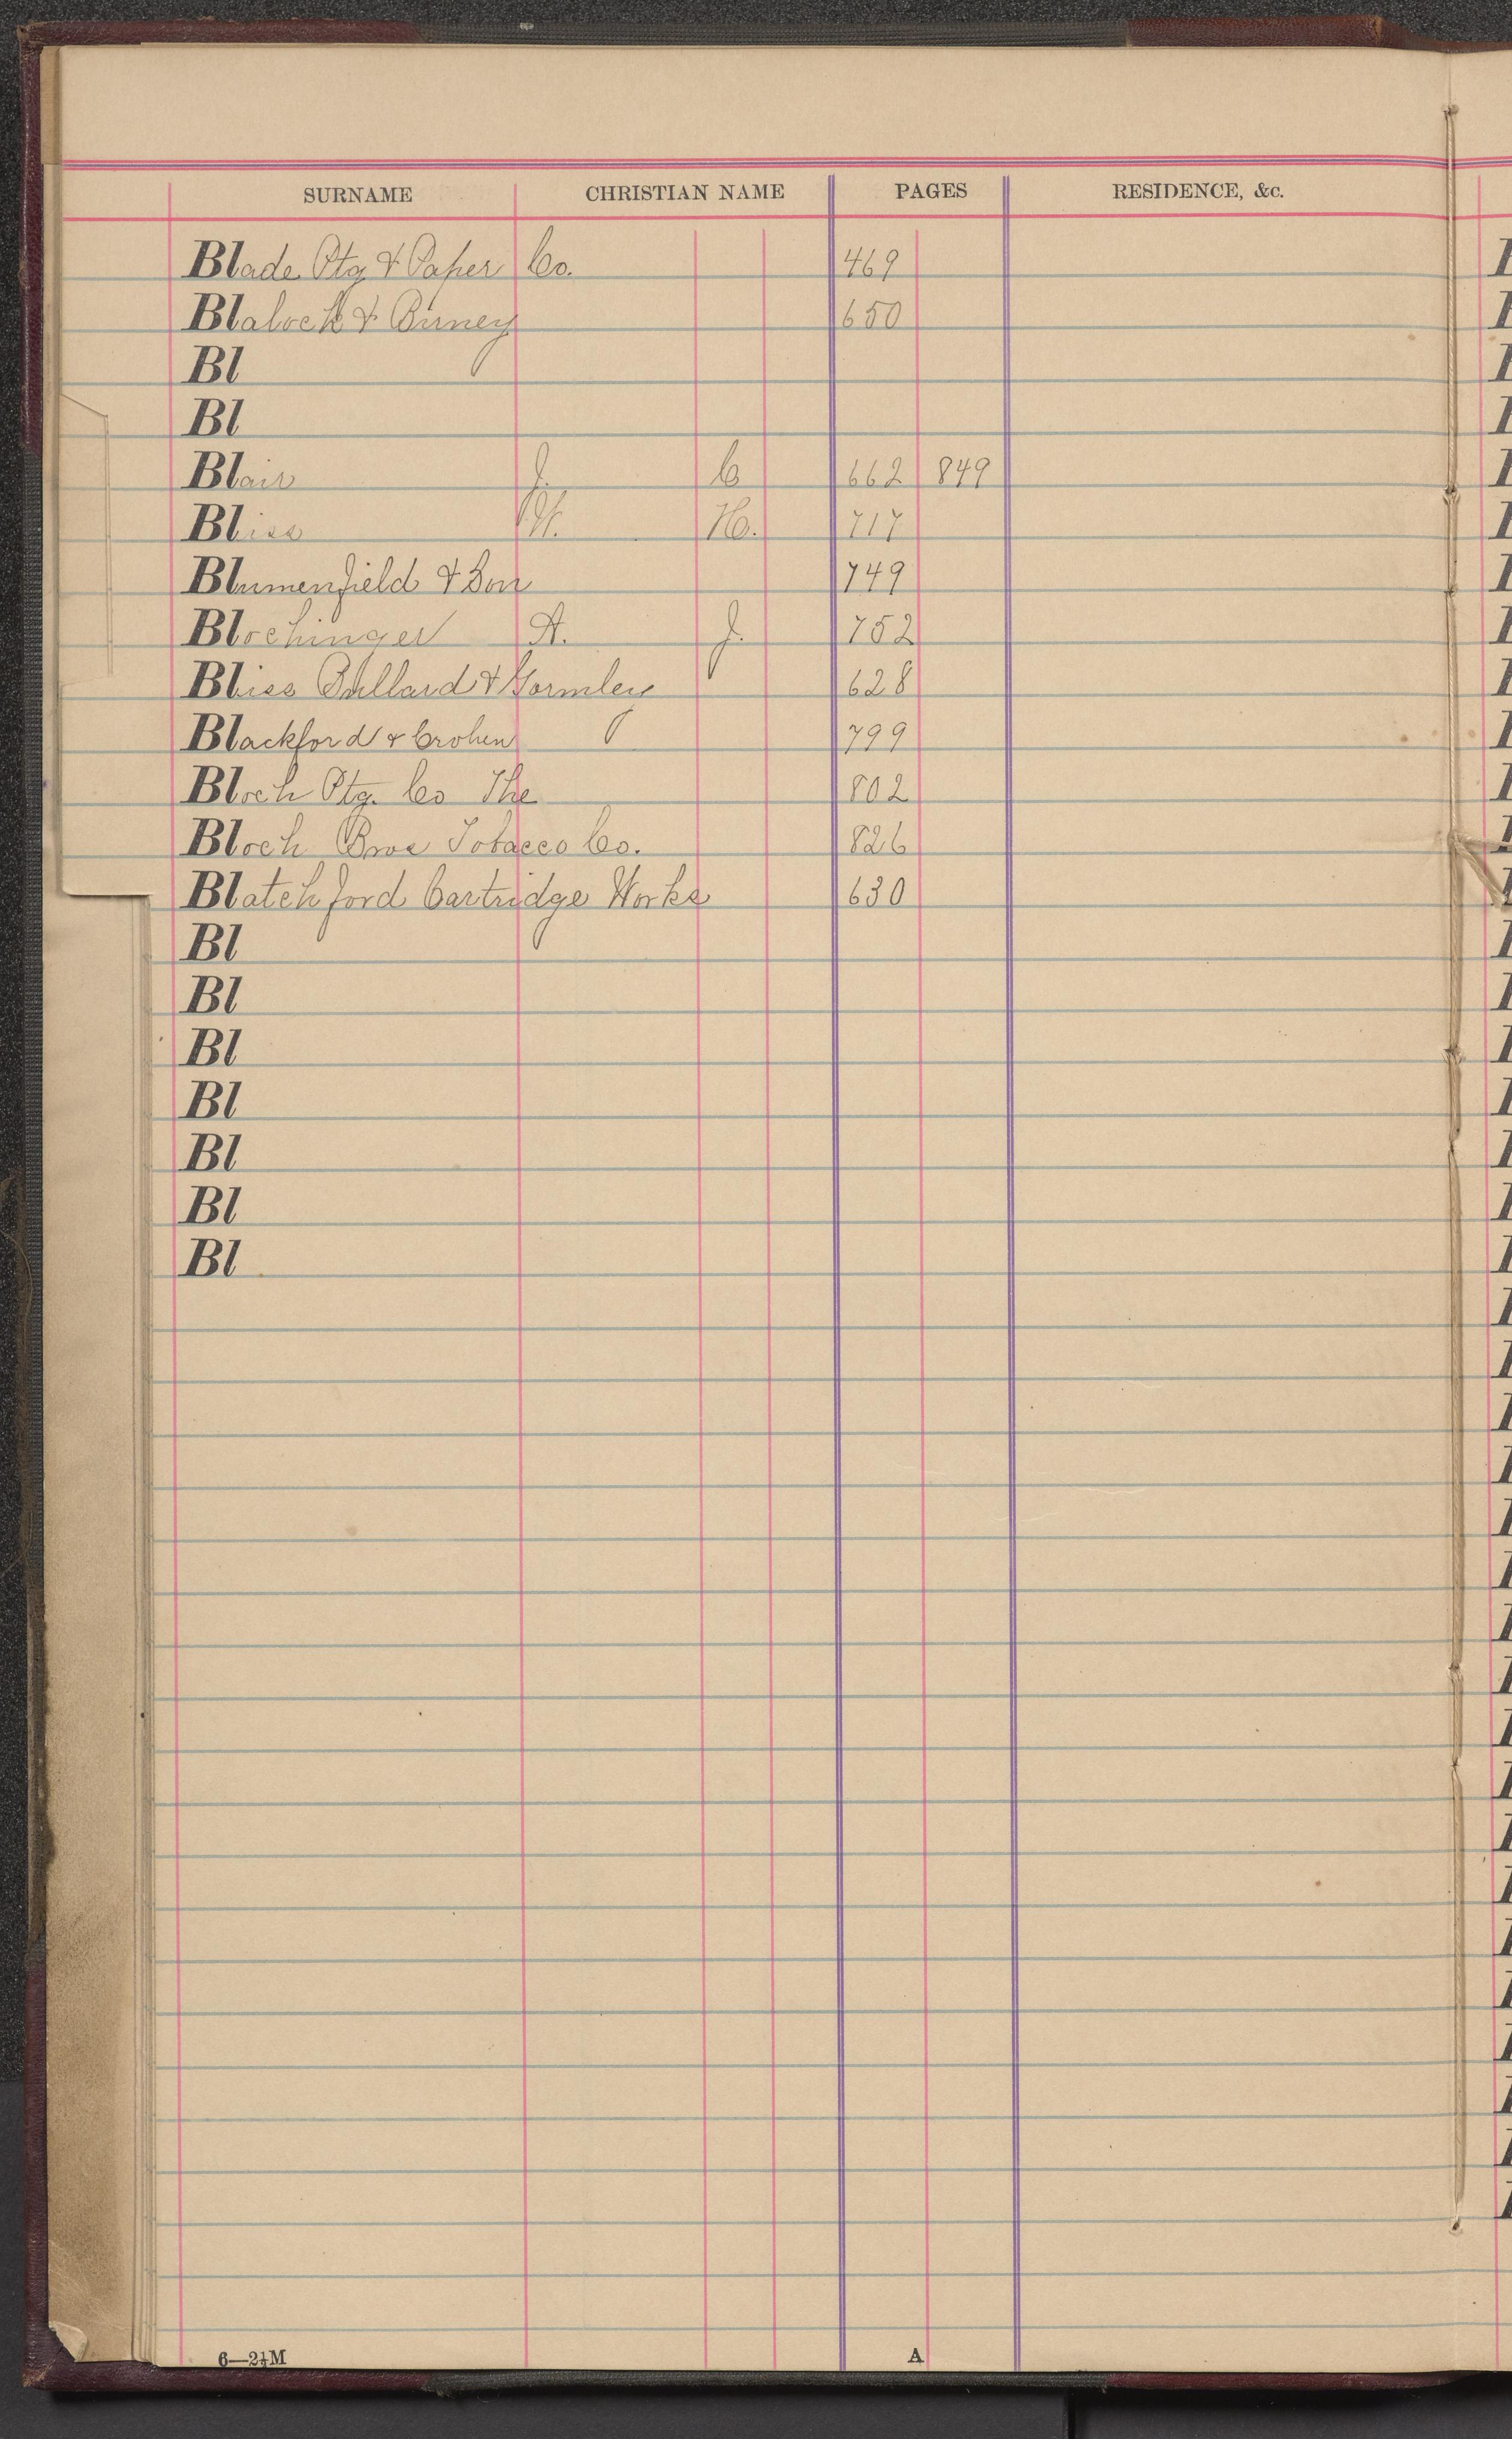 SURNAME CHRISTIAN NAME PAGES RESIDENCE, &c.
Blade Ptg & Paper Co. 469
Blalock & Birney 650
Bl
Bl
Blair J. C 662 849
Bliss W. H. 717
Blumenfield & Son 749
Blochinger A. J. 752
Bliss Bullard & Gormley 628
Blackford & Crohen 799
Bloch Ptg. Co The 802
Bloch Bros Tobacco Co. 826
Blatchford Cartridge Works 630
Bl
Bl
Bl
Bl
Bl
Bl
Bl
6—2½M A